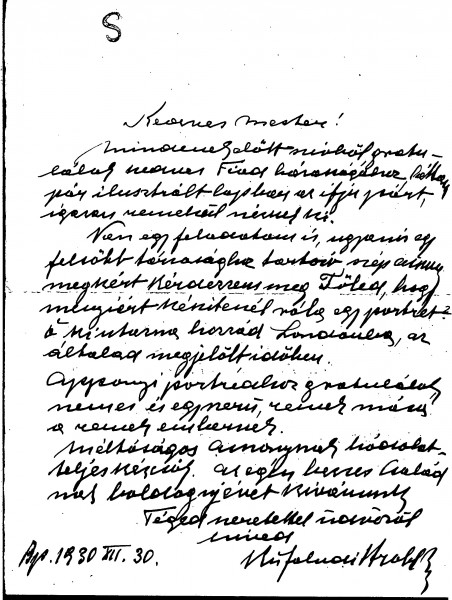 S
Kedves mester!
Mindenek előtt szívből gratu-
lálok nemes Fiad házasságához. Láttam
pár ilusztrált lapban az ifjú párt,
igazán remekül néznek ki.
Van egy feladatom is, ugyanis egy
felsőbb társasághoz tartozó szép asszony
megkért kérdezzem meg Tőled, hogy
mennyiért készítenél róla egy portrét?
Ő kintarna hozzád Londonba, az
általad megjelölt időben.
Apponyi portrédhoz gratulálok
nemes és egyszerű, remek mása
a remek embernek.
Méltóságos Asszonynak hódolat-
teljes kézcsók. Az egész kedves Család
nak boldog újévet kívánunk
Téged szeretettel üdvözöl
híved
Bp. 1930 XII. 30.